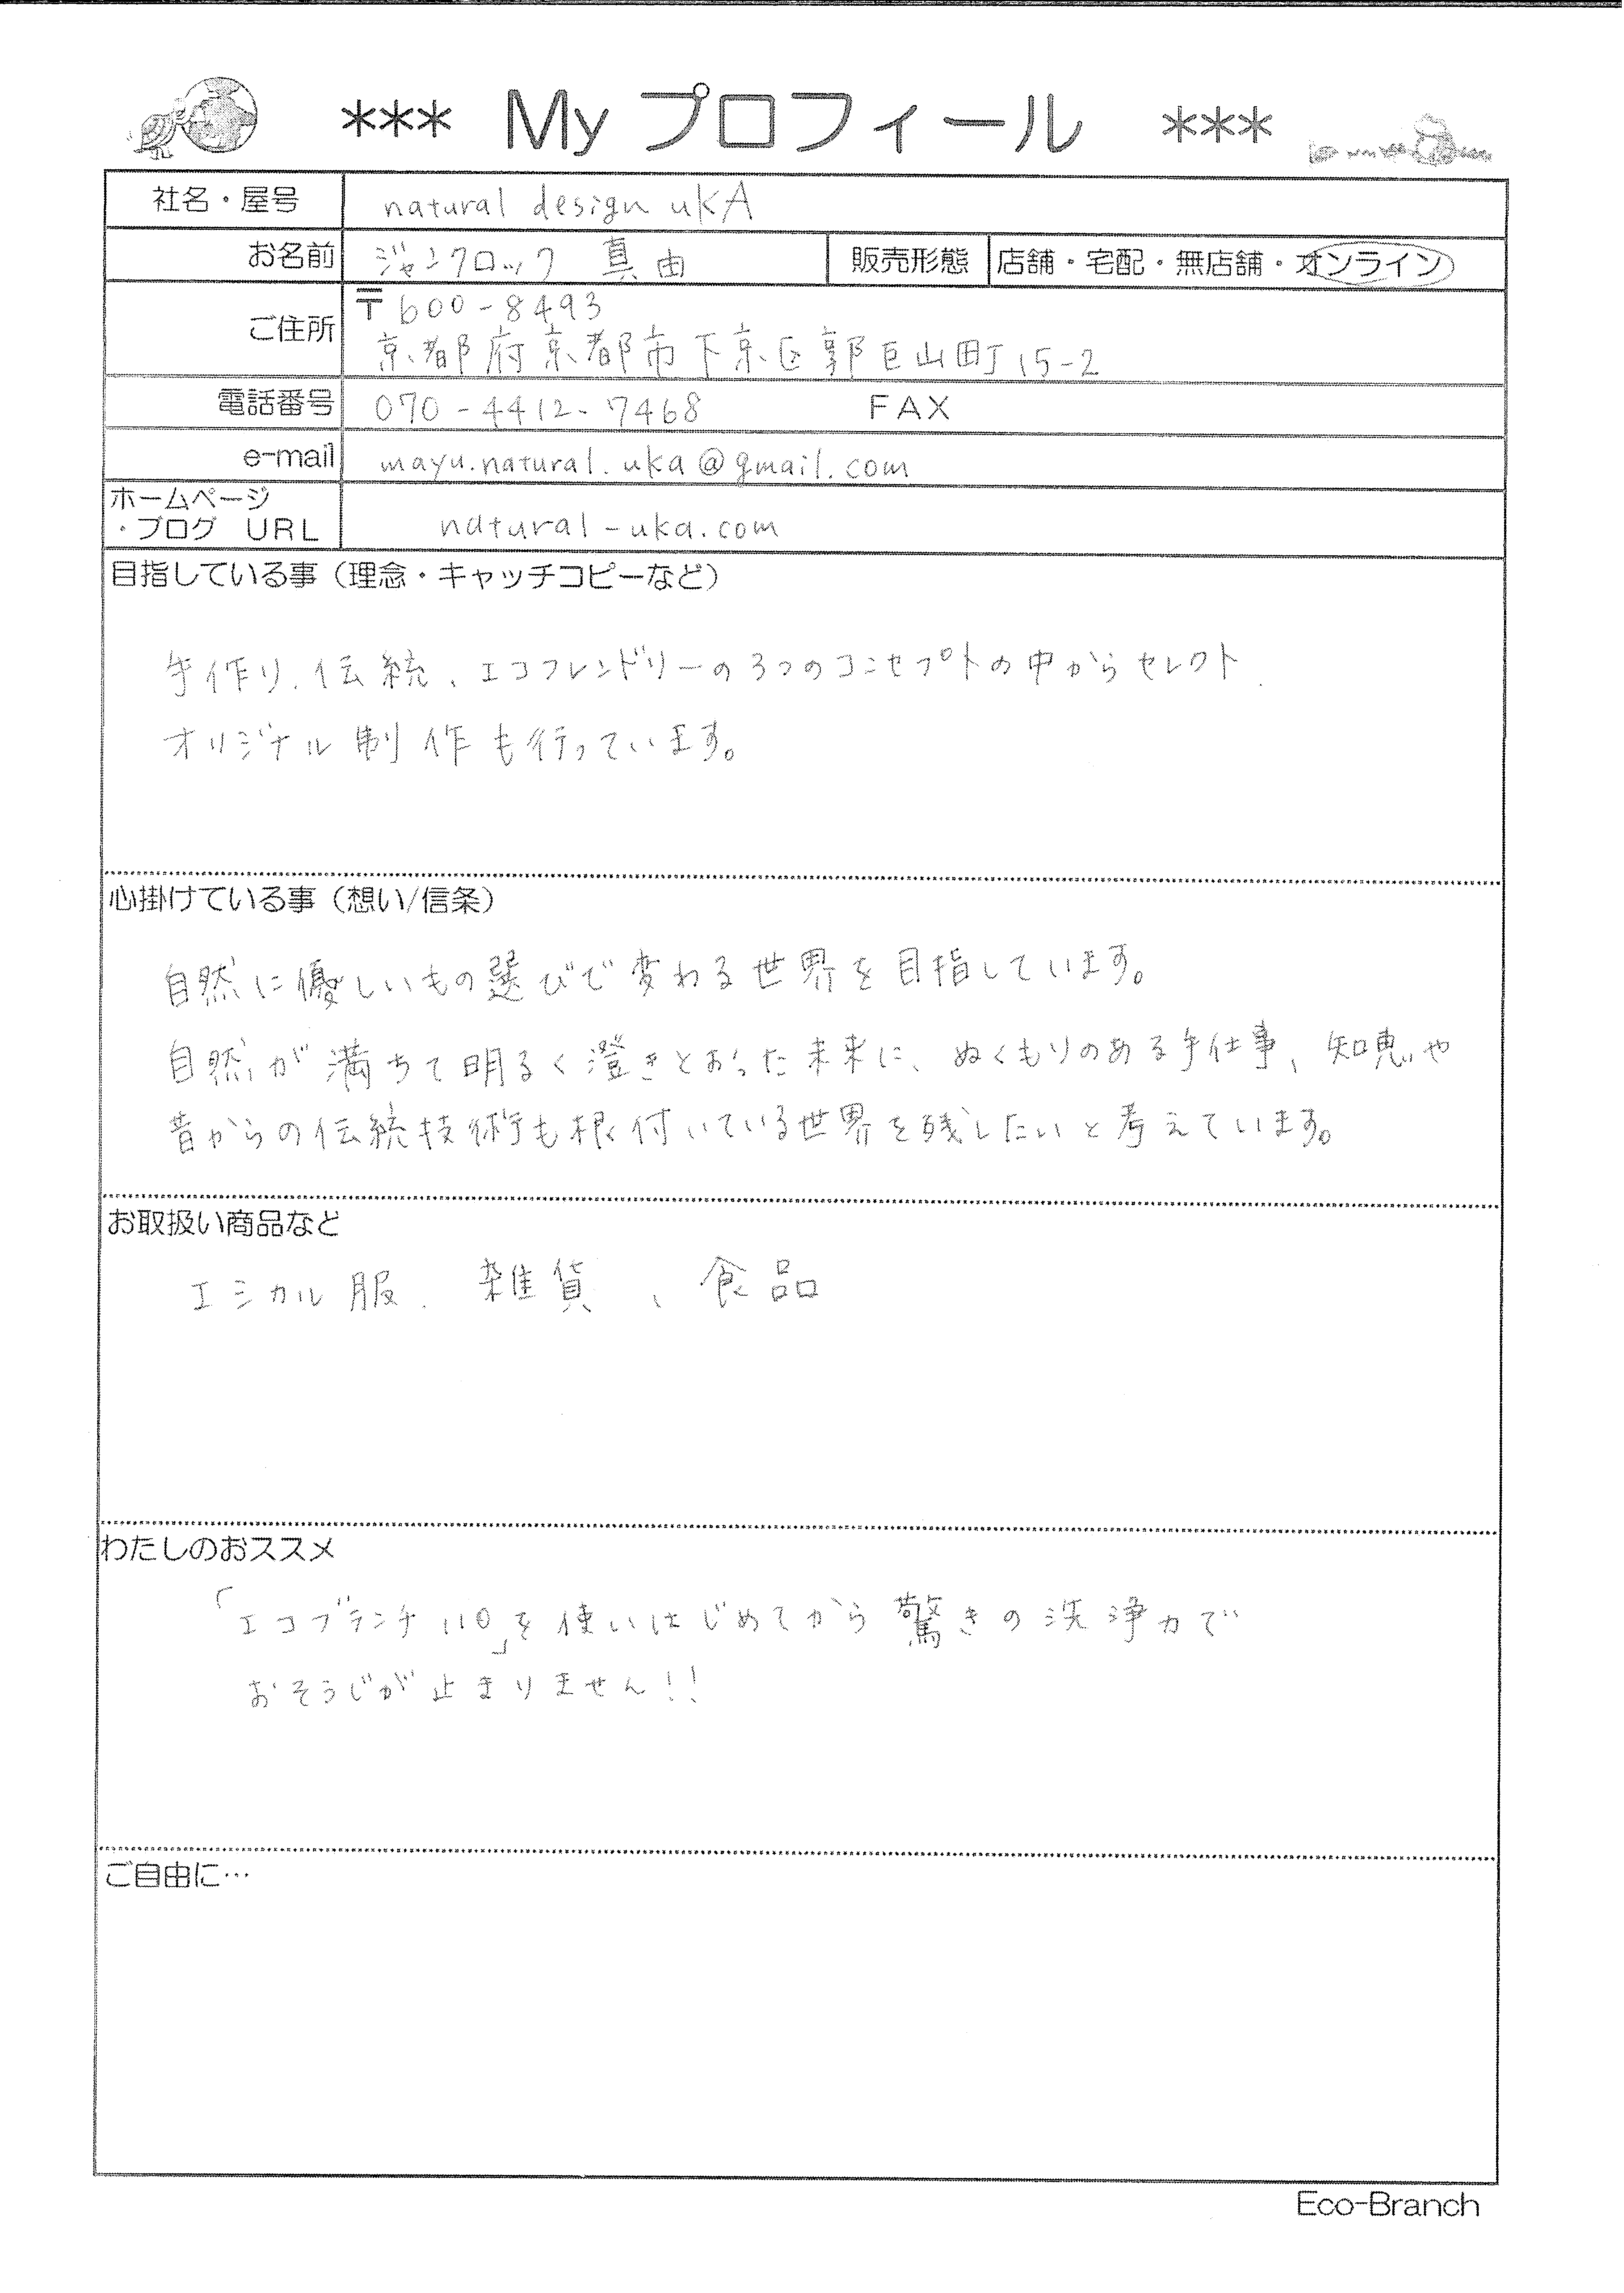 *** My プロフィール ***
社名・屋号 natural design ukA
お名前 ジャンクロック 真由 販売形態 店舗・宅配・無店舗・オンライン
ご住所 〒600-8493
京都府京都市下京区郭巨山町15-2
電話番号 070-4412-7468 FAX
e-mail mayu.natural.uka@gmail.com
ホームページ
・ブログ URL natural-uka.com
目指している事（理念・キャッチコピーなど）
手作り、伝統、エコフレンドリーの3つのコンセプトの中からセレクト、
オリジナル制作も行っています。
心掛けている事（想い/信条）
自然に優しいもの選びで変わる世界を目指しています。
自然が満ちて明るく澄きとおった未来に、ぬくもりのある手仕事、知恵や
昔からの伝統技術も根付いている世界を残したいと考えています。
お取扱い商品など
エシカル服、雑貨、食品
わたしのおススメ
「エコブランチ110」を使いはじめてから驚きの洗浄力で
おそうじが止まりません!!
ご自由に…
Eco-Branch